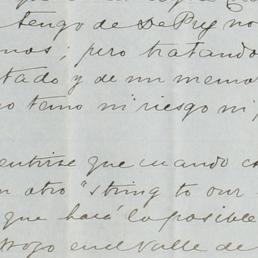 tengo de DePuy no
nos; pero tratando
tado y de un memor
o temo ni riesgo ni p
entirse que cuando
n otro "string to our
que hará lo posible
en el Valle de